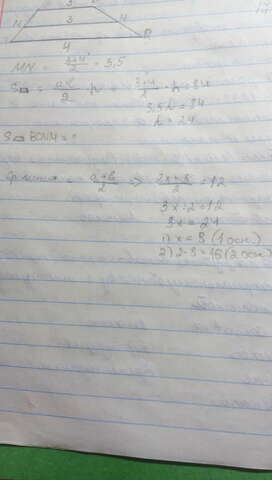 3
N 3 M
4 D
MN = (3+4)/2 = 3,5
S = (a+b)/2 · h = (3+4)/2 · h = 84
3,5h = 84
h = 24
S BCNM = ?
ср линия = (a+b)/2 => (2x+x)/2 = 12
3x:2=12
3x = 24
1) x = 8 (1 осн)
2) 2·8=16 (2 осн)